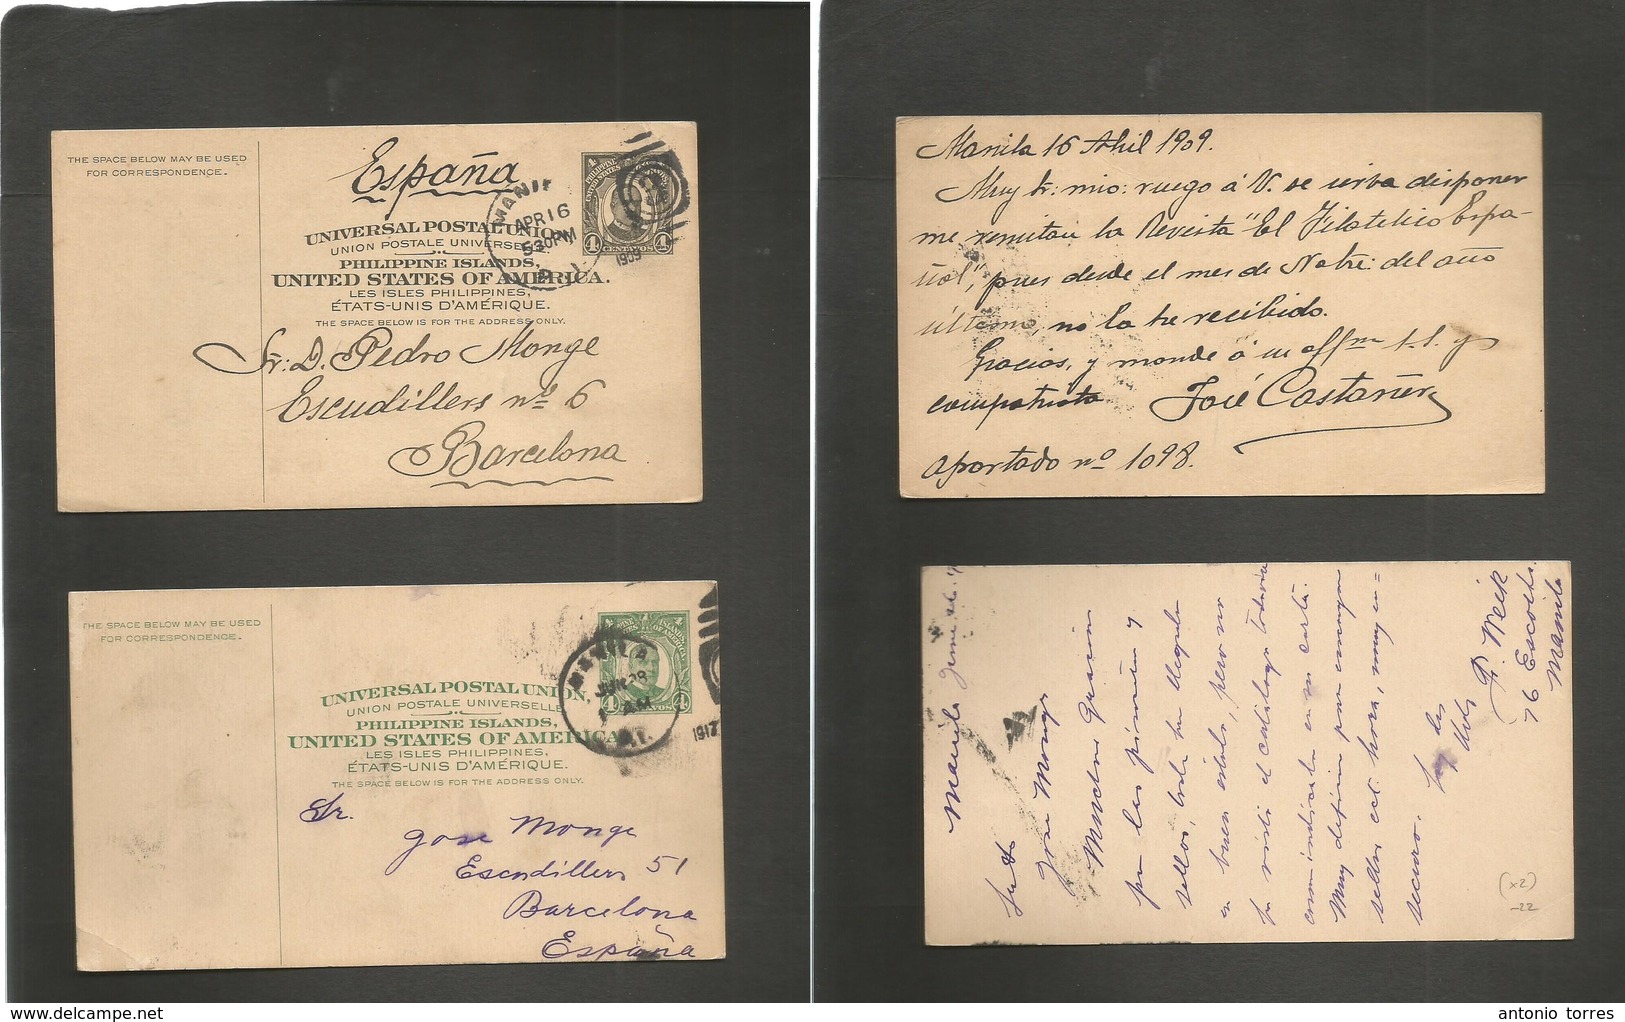 THE SPACE BELOW MAY BE USED
FOR CORRESPONDENCE.
España
MANIL
APR 16
530PM
1909
PHILIPPINE ISLANDS
UNITED STATES OF AMERICA
4 CENTAVOS 4
UNIVERSAL POSTAL UNION,
UNION POSTALE UNIVERSELLE.
PHILIPPINE ISLANDS,
UNITED STATES OF AMERICA.
LES ISLES PHILIPPINES,
ÉTATS-UNIS D'AMÉRIQUE.
THE SPACE BELOW IS FOR THE ADDRESS ONLY.
Sr. D. Pedro Monge
Escudillers nº 6
Barcelona
Manila 16 Abril 1909.
Muy Sr. mio: ruego á V. se sirva disponer
me remitan la Revista "El Filatelico Espa-
ñol", pues desde el mes de Nobre. del año
último, no la he recibido.
Gracias, y mande á su affmo s.s. y
compatriota José Castañer
Apartado nº 1098.
THE SPACE BELOW MAY BE USED
FOR CORRESPONDENCE.
MANILA
JUN 28
AM
P.I.
1912
4 CENTAVOS 4
UNIVERSAL POSTAL UNION,
UNION POSTALE UNIVERSELLE
PHILIPPINE ISLANDS,
UNITED STATES OF AMERICA
LES ISLES PHILIPPINES,
ÉTATS-UNIS D'AMÉRIQUE.
THE SPACE BELOW IS FOR THE ADDRESS ONLY.
Sr.
Jose Monge
Escudillers 51
Barcelona
España
Manila
Jose Monge
Muchas gracias
por los
sellos,
en buen estado, pero no
he visto el catalogo todavia
en su carta.
Muy
sellos
seguro.
P. Weik
76 Escolta
Manila
(x2)
-22
antonio torres